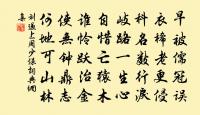 早被儒冠误
衣老更侵
科名数行泪
岐路一生心
自惜亡木
谁怜跃冶金
使无钟鼎志
何地可山林
刘过上周少保
集